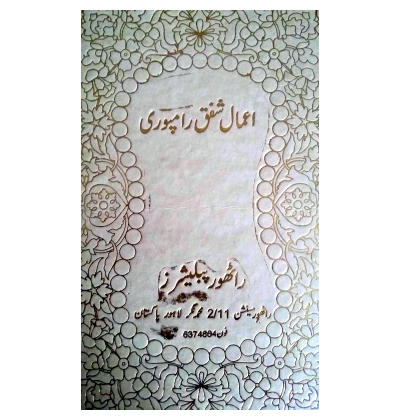 اعمال شفق رامپوری
راٹھور پبلیشرز
راٹھور مینشن 2/11 محمد نگر لاہور پاکستان
فون 6374864